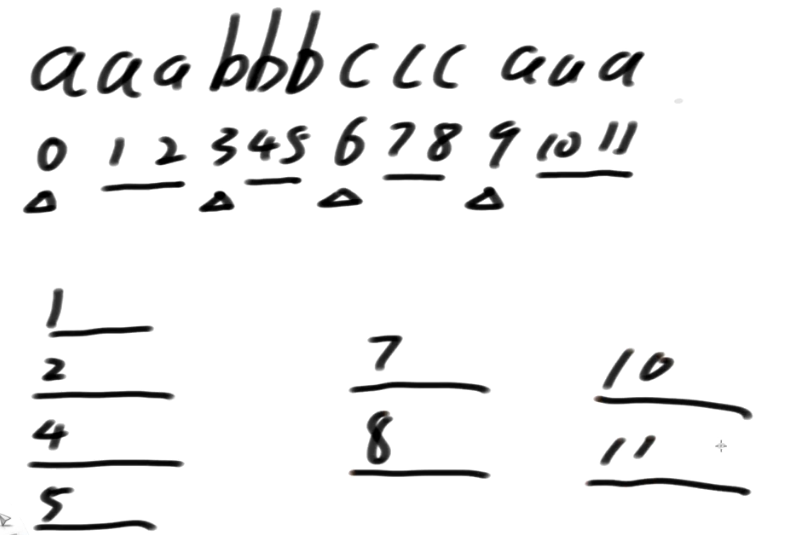 aaabbbccc aaa
0 1 2 3 4 5 6 7 8 9 10 11
1
2
4
5
7
8
10
11